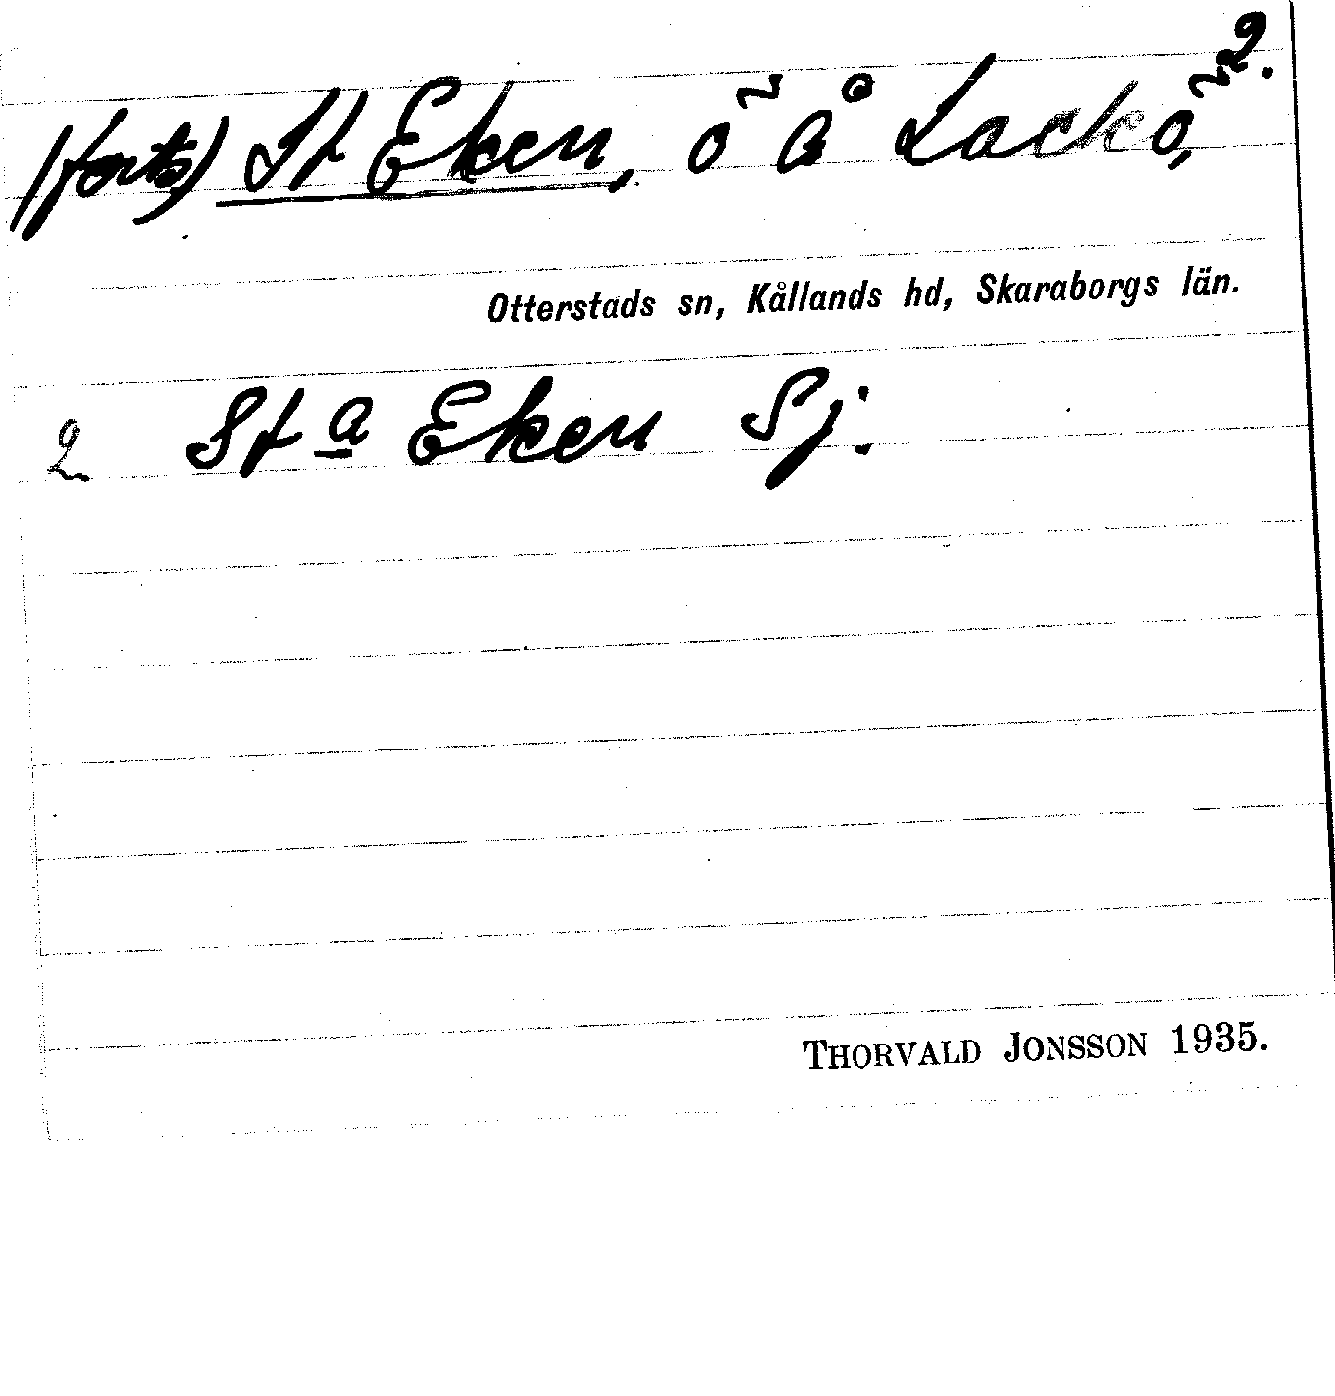 2.
(forts) St Eken, ö å Läckö,
Otterstads sn, Kållands hd, Skaraborgs län.
2 Sta Eken Sj.
THORVALD JONSSON 1935.